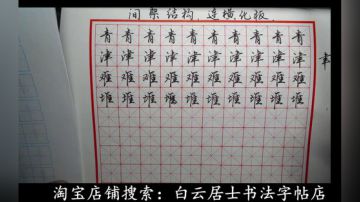 间架结构,连横化板
青青青青青青青青青
津津津津津津津津津
难难难难难难难难难
堆堆堆堆堆堆堆堆堆
淘宝店铺搜索：白云居士书法字帖店